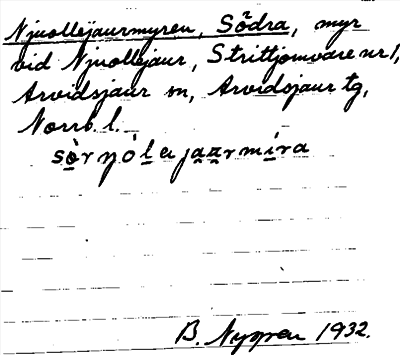 Njuollejaurmyren, Södra, myr
vid Njuollejaur, Strittjomvare nr 1,
Arvidsjaur sn, Arvidsjaur tg,
Norrb. l.
B. Nygren 1932.